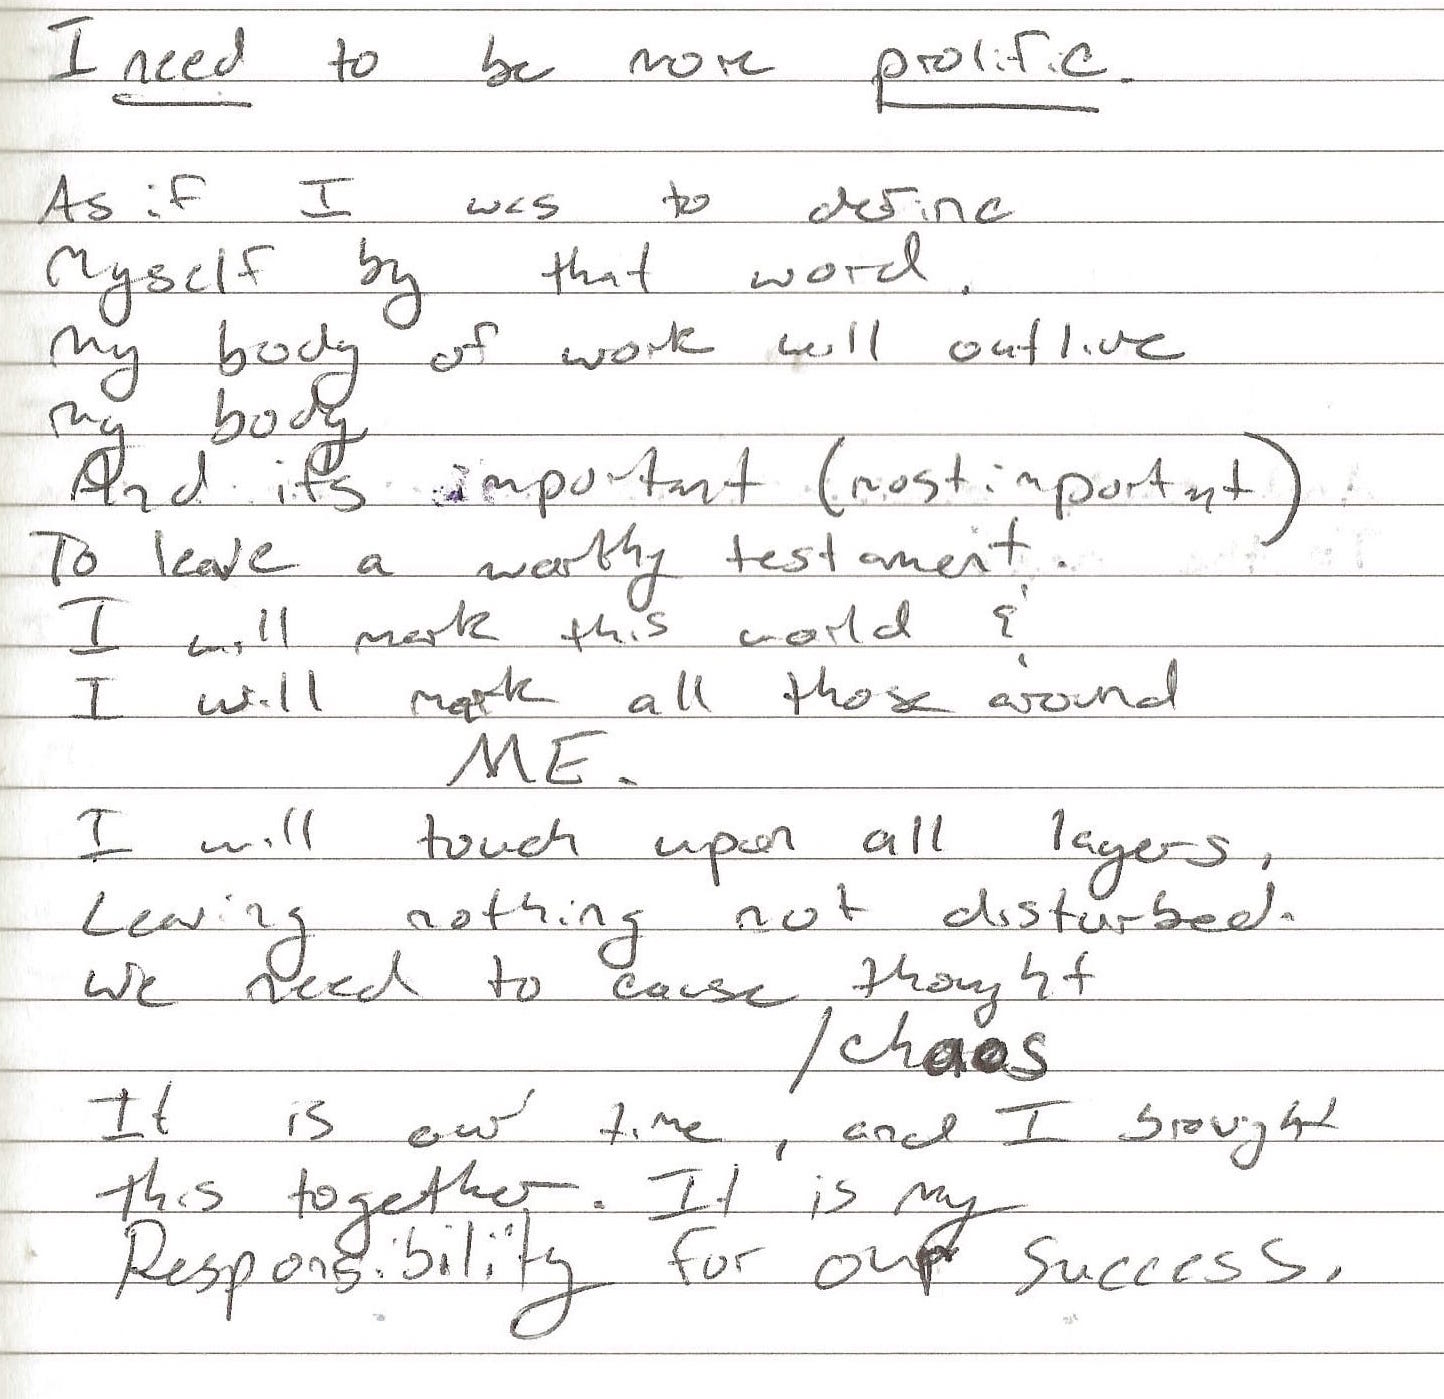 I need to be more prolific.
As if I was to define
Myself by that word.
My body of work will outlive
my body
And its important (most important)
To leave a worthy testament.
I will mark this world &
I will mark all those around
ME.
I will touch upon all layers,
Leaving nothing not disturbed.
We need to cause thought
/chaos
It is our time, and I brought
this together. It is my
Responsibility for our success.